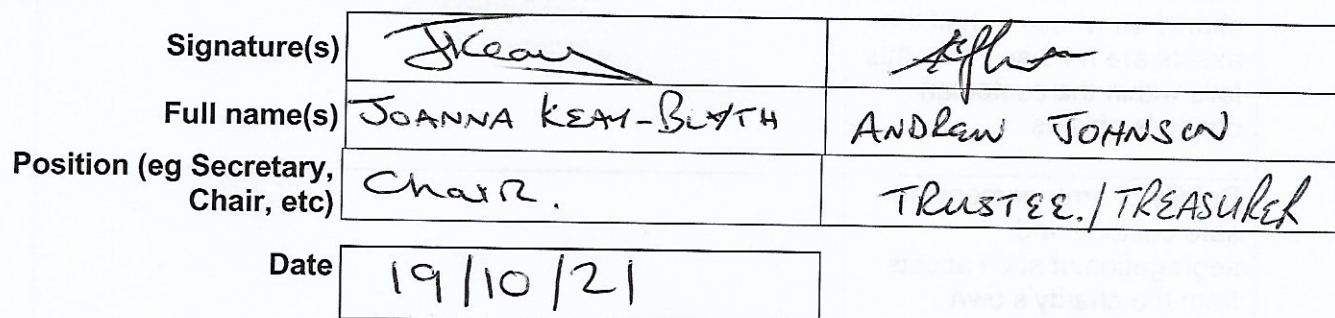 Signature(s)
Full name(s) JOANNA KEAY-BLYTH ANDREW JOHNSON
Position (eg Secretary,
Chair, etc) Chair. TRUSTEE./TREASURER
Date 19/10/21